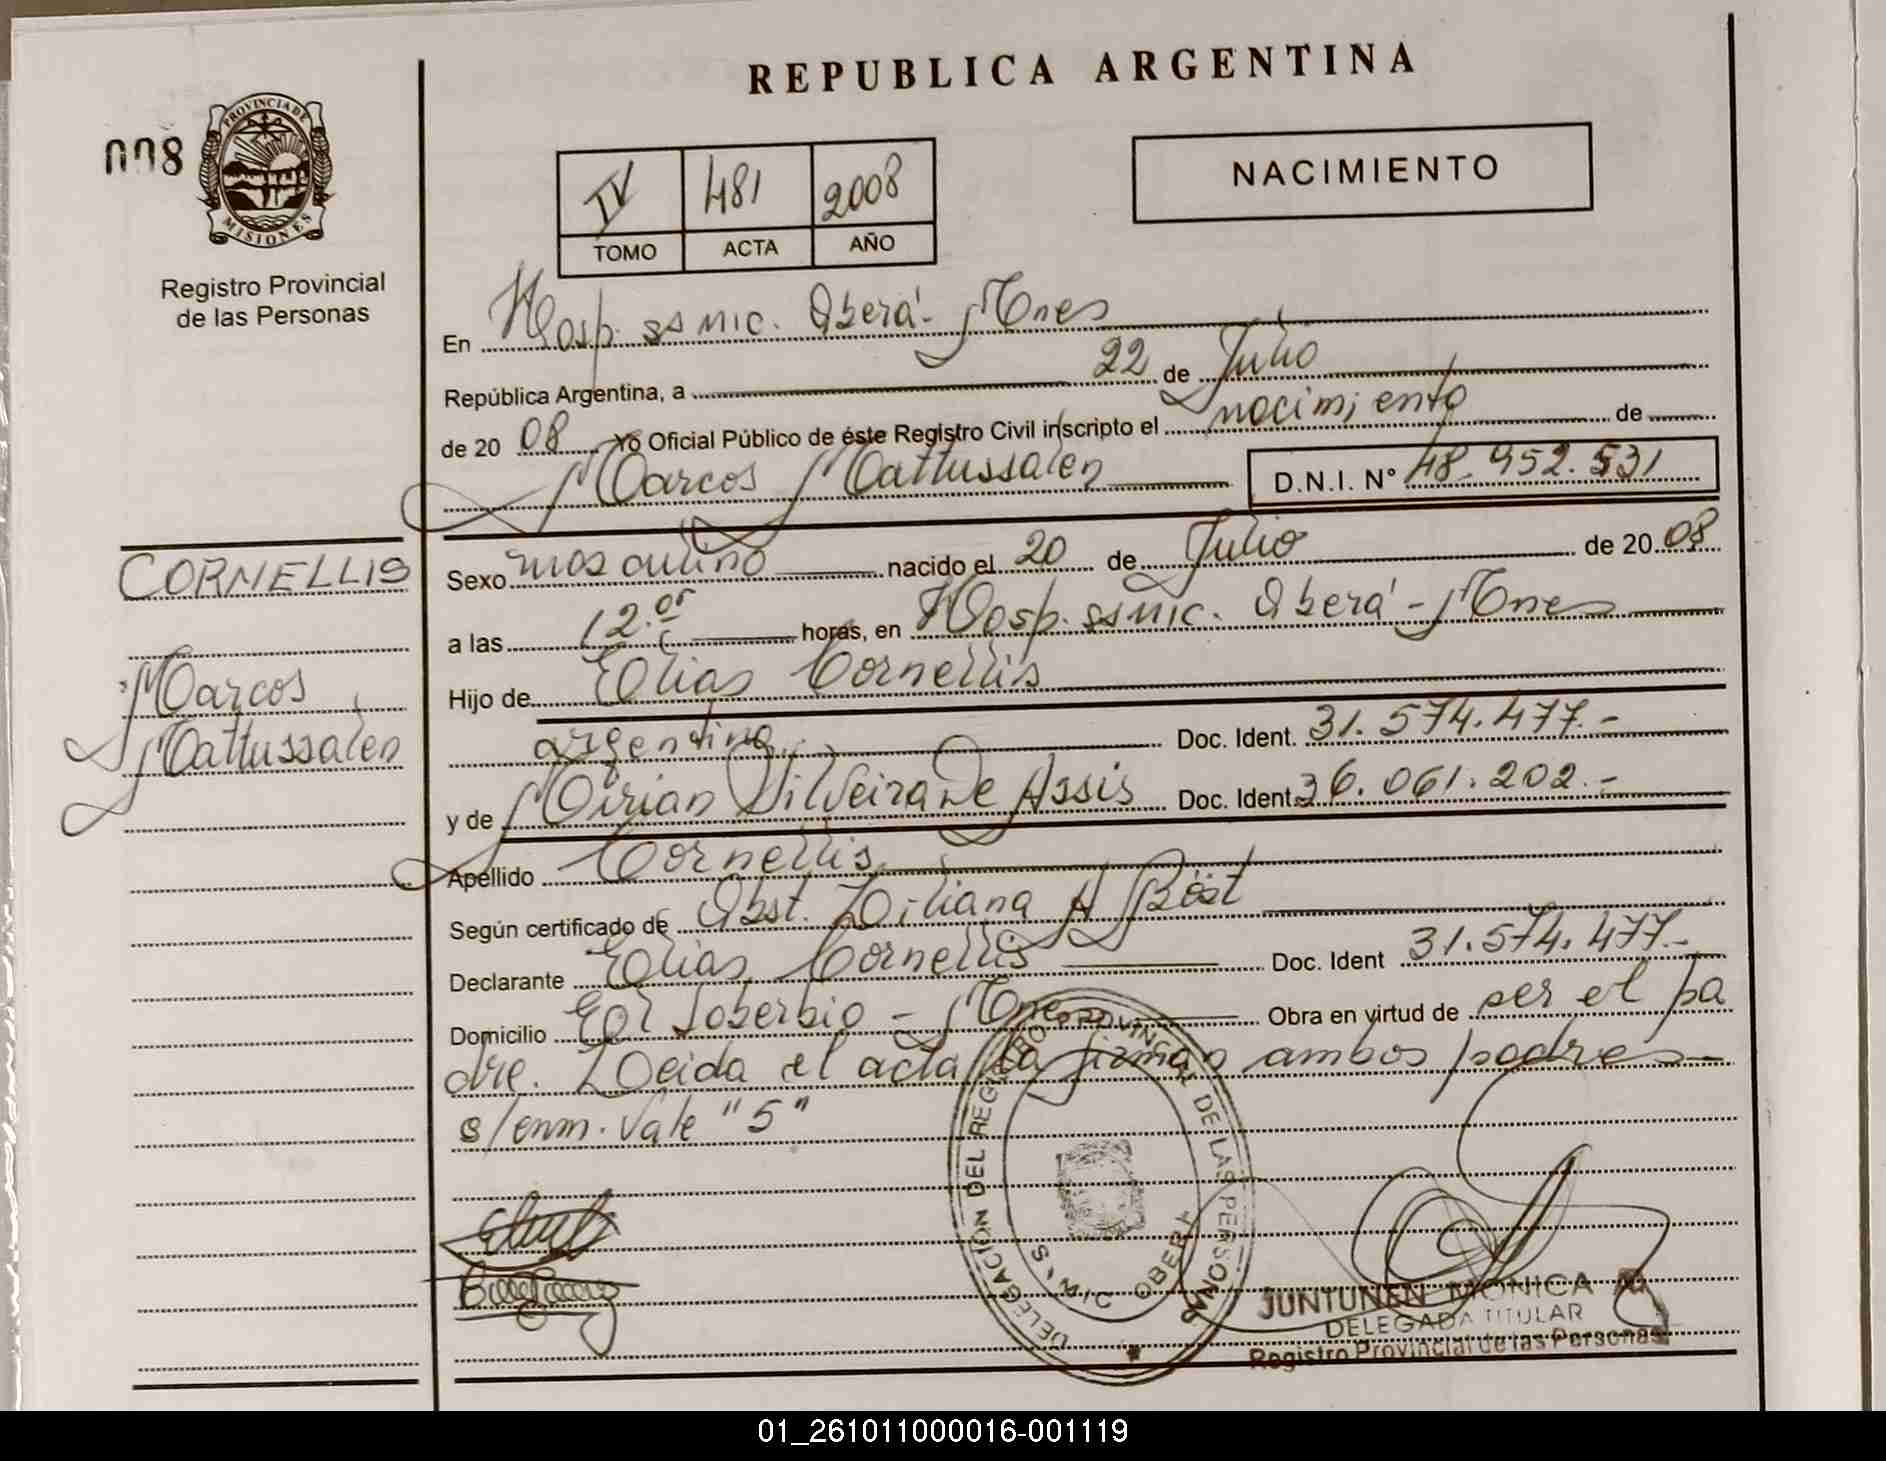 REPUBLICA ARGENTINA
008
PROVINCIA DE
MISIONES
Registro Provincial
de las Personas
IV 481 2008
TOMO ACTA AÑO
NACIMIENTO
En Hosp. ss MIC. Oberá - Mnes
República Argentina, a 22 de Julio
de 20 08 Yo Oficial Público de éste Registro Civil inscripto el nacimiento de
Marcos Mattussalen D.N.I. N° 48.952.531
CORNELLIS
Marcos
Mattussalen
Sexo masculino nacido el 20 de Julio de 20 08
a las 12.05 horas, en Hosp. ss MIC. Oberá - Mnes
Hijo de Elias Cornellis
argentino Doc. Ident. 31.574.477.-
y de Mirian Silveira De Assis Doc. Ident 36.061.202.-
Apellido Cornellis
Según certificado de Obst. Liliana A Böst
Declarante Elias Cornellis Doc. Ident 31.574.477.-
Domicilio El Soberbio - Mnes Obra en virtud de ser el pa
dre. Leida el acta la firman ambos padres -
s/enm. Vale "5"
DELEGACIÓN DEL REGISTRO PROVINCIAL DE LAS PERSONAS
OBERA
JUNTUNEN MONICA
DELEGADA TITULAR
Registro Provincial de las Personas
01_261011000016-001119